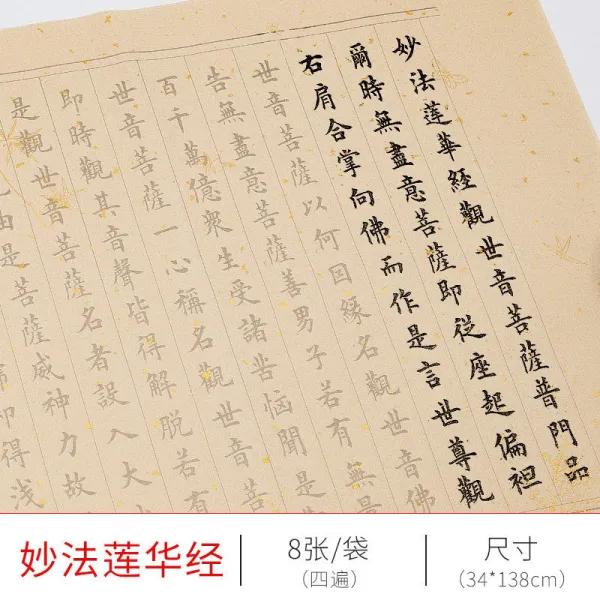 妙法蓮華經觀世音菩薩普門品
爾時無盡意菩薩即從座起偏袒
右肩合掌向佛而作是言世尊觀
世音菩薩以何因緣名觀世音佛
告無盡意菩薩善男子若有無量
百千萬億衆生受諸苦惱聞是
世音菩薩一心稱名觀世音菩
即時觀其音聲皆得解脱若有
是觀世音菩薩名者設入大
由是菩薩威神力故
即得淺
妙法莲华经
8张/袋
(四遍)
尺寸
(34*138cm)